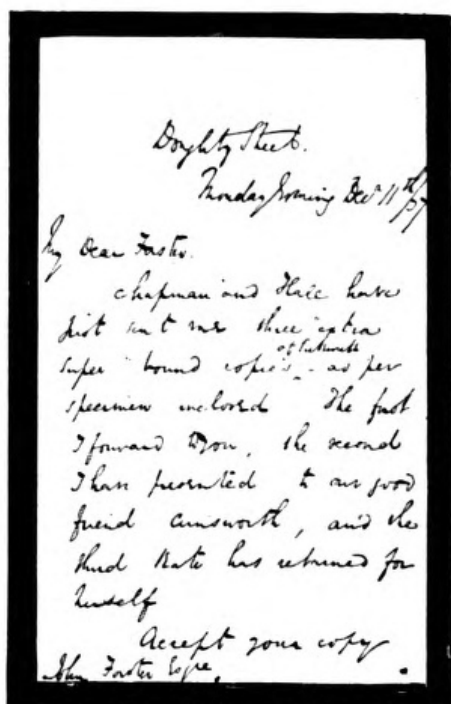 Doughty Street.
Monday Evening Decr 11th/37
My Dear Forster.
Chapman and Hall have
just sent me three "extra
of Pickwick
super" bound copies, as per
specimen inclosed. The first
I forward to you, the second
I have presented to our good
friend Ainsworth, and the
third Kate has retained for
herself
Accept your copy
John Forster Esqre.